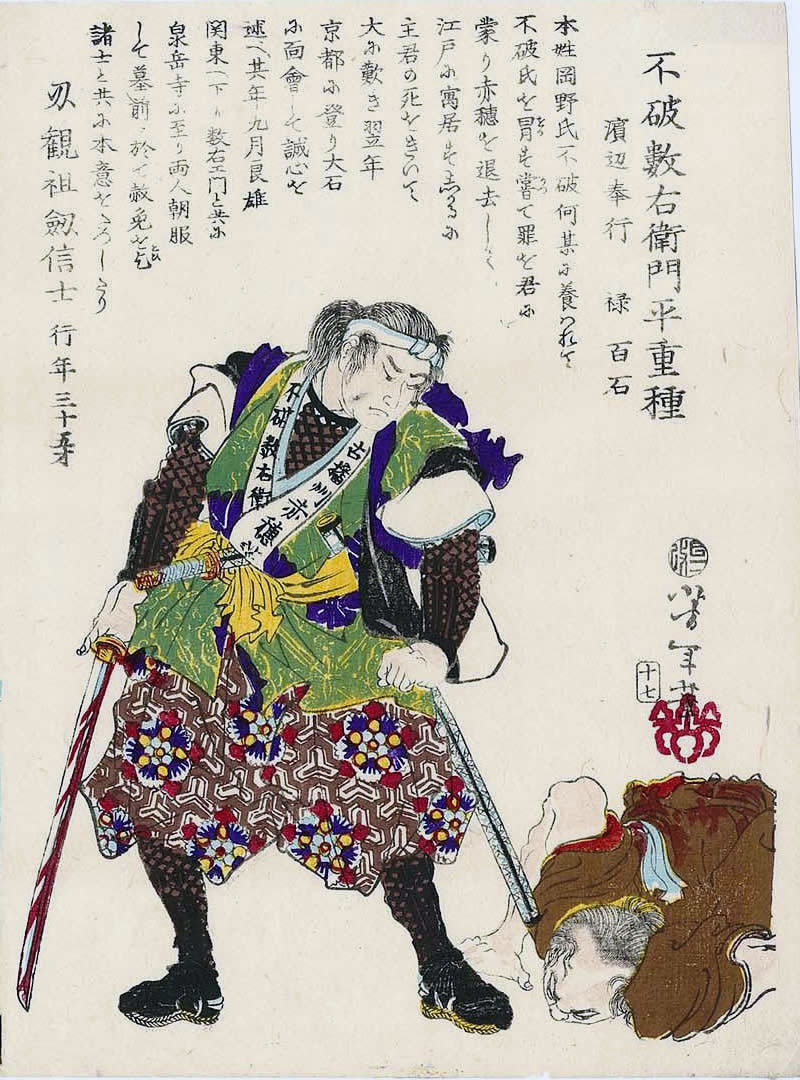 不破數右衛門平重種
濵辺奉行 禄百石
本姓岡野氏不破何某に養はれて
不破氏を冒す嘗て罪を君に
蒙り赤穂を退去しく
江戸に寓居すしかるに
主君の死をきいて
大に歎き翌年
京都に登り大石
に面會して誠心を
述べ其年九月良雄
関東へ下り数右エ門と共に
泉岳寺に至り両人朝服
して墓前に於て赦免を乞
諸士と共に本意をたつしたり
刄観祖劔信士 行年三十五才
不破數右衛
古播州赤穂
芳年
十七